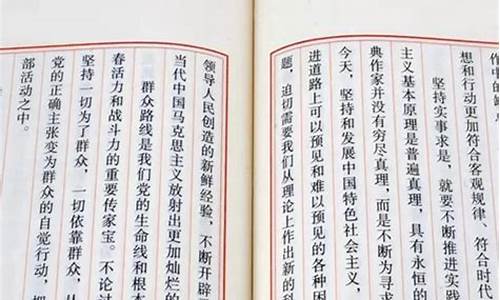 作中的缺
想和行动更加符合客观规律、符合时代
坚持实事求是，就要不断推进实践
主义基本原理是普遍真理，具有永恒的
典作家并没有穷尽真理，而是不断为寻求
今天，坚持和发展中国特色社会主义，
进道路上可以预见和难以预见的各种困
题，迫切需要我们从理论上作出新的科
领导人民创造的新鲜经验，不断开辟
当代中国马克思主义放射出更加灿烂的
群众路线是我们党的生命线和根本
春活力和战斗力的重要传家宝。不论过
坚持一切为了群众，一切依靠群众，从
党的正确主张变为群众的自觉行动，把
部活动之中。